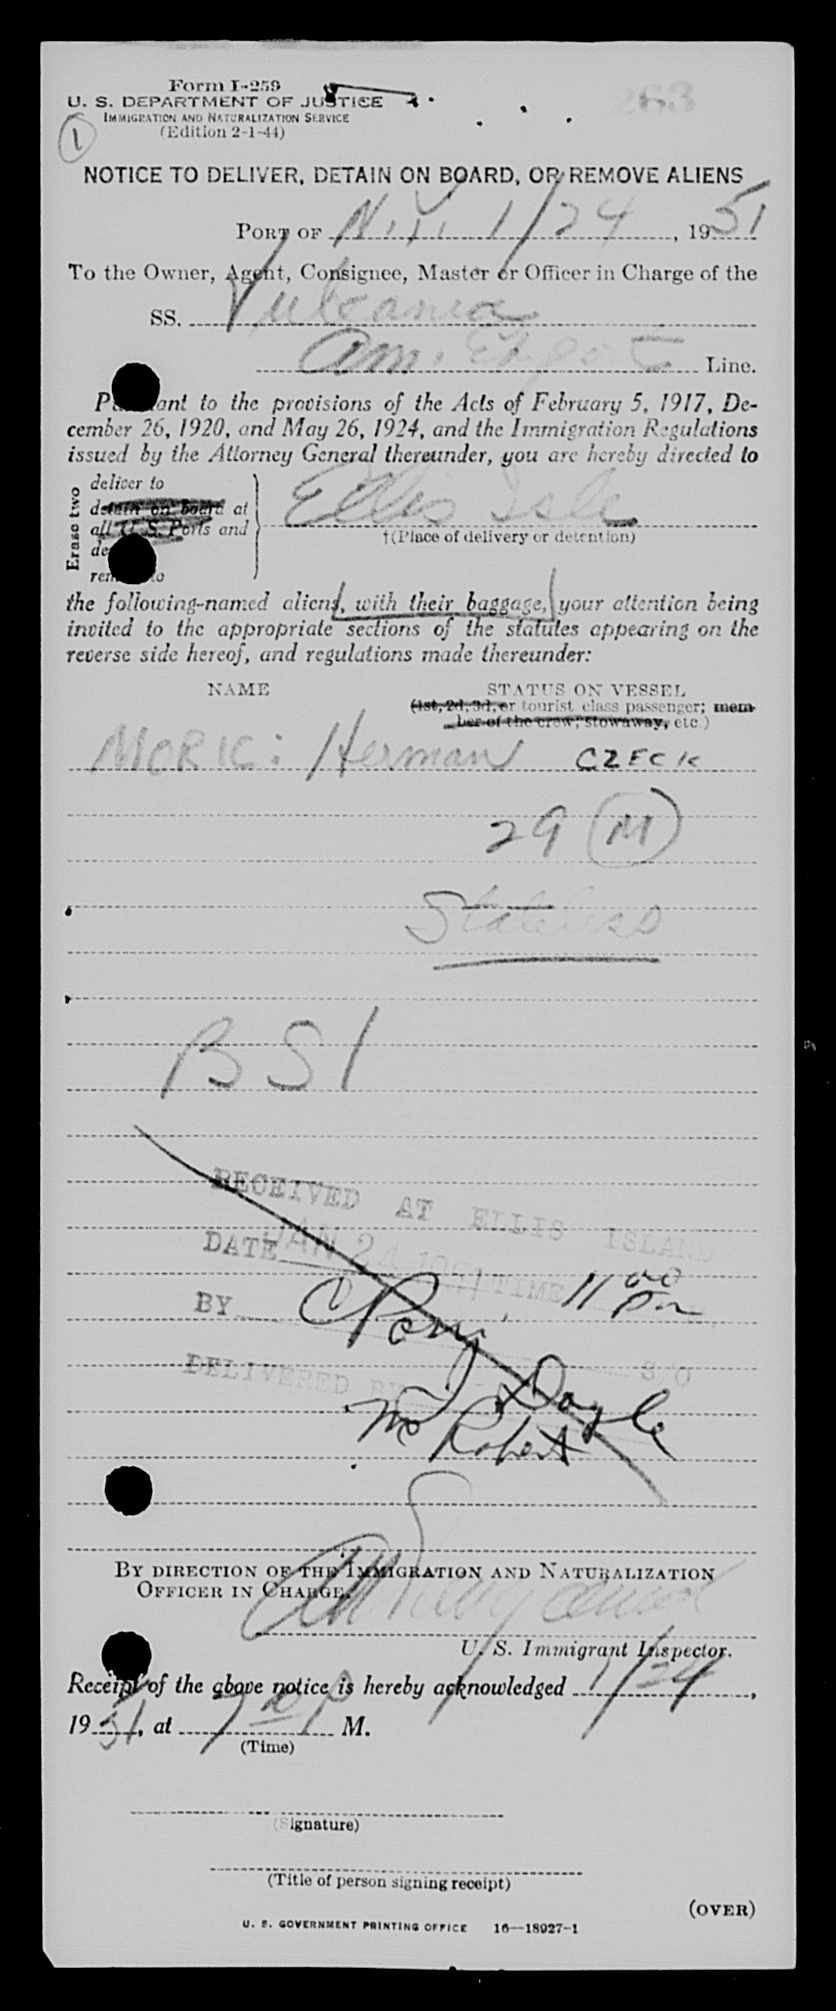 263
Form I-259
U. S. DEPARTMENT OF JUSTICE
IMMIGRATION AND NATURALIZATION SERVICE
(Edition 2-1-44)
1
NOTICE TO DELIVER, DETAIN ON BOARD, OR REMOVE ALIENS
PORT OF N.Y. 1/24, 1951
To the Owner, Agent, Consignee, Master or Officer in Charge of the
SS. Vulcania
Am. Export Line.
Pursuant to the provisions of the Acts of February 5, 1917, De-
cember 26, 1920, and May 26, 1924, and the Immigration Regulations
issued by the Attorney General thereunder, you are hereby directed to
Erase two
deliver to
detain on board at
all U. S. Ports and
remove to
Ellis Isle
†(Place of delivery or detention)
the following-named aliens, with their baggage, your attention being
invited to the appropriate sections of the statutes appearing on the
reverse side hereof, and regulations made thereunder:
NAME STATUS ON VESSEL
(1st, 2d, 3d, or tourist class passenger; mem-
ber of the crew, stowaway, etc.)
MORIC: Herman CZECK
29 (M)
Stateless
BSI
RECEIVED AT ELLIS ISLAND
DATE JAN 24 1951 TIME 11 00 Pm
BY
S/O
DELIVERED BY Doyle
Robert
BY DIRECTION OF THE IMMIGRATION AND NATURALIZATION
OFFICER IN CHARGE.
U. S. Immigrant Inspector.
Receipt of the above notice is hereby acknowledged 1/24,
1951, at 7 P M.
(Time)
(Signature)
(Title of person signing receipt)
(OVER)
U. S. GOVERNMENT PRINTING OFFICE 16—18927-1